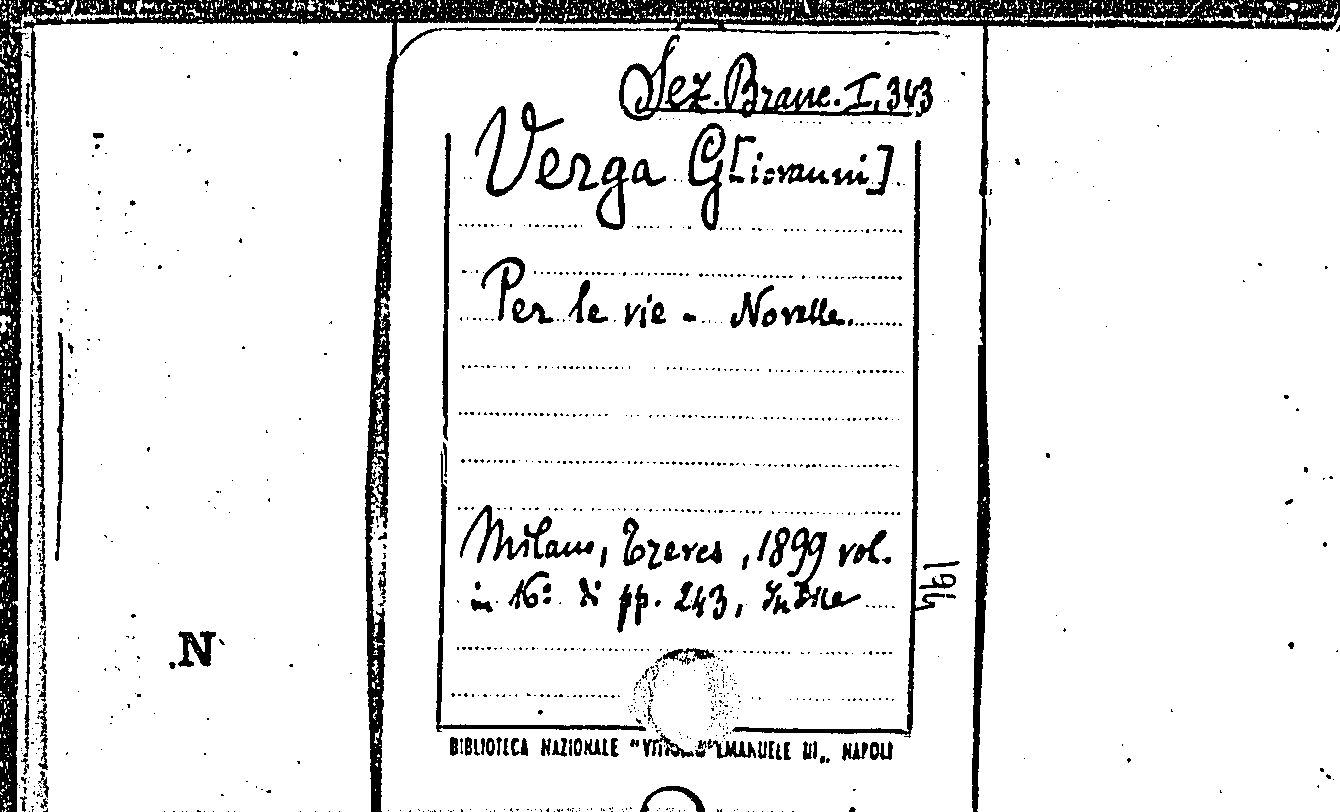 Sez. Branc. I, 343
Verga G[iovanni]
Per le vie - Novelle.
Milano, Treves, 1899 vol.
in 16º di pp. 243, Indice
194
.N
BIBLIOTECA NAZIONALE "VITTORIO EMANUELE III„ NAPOLI